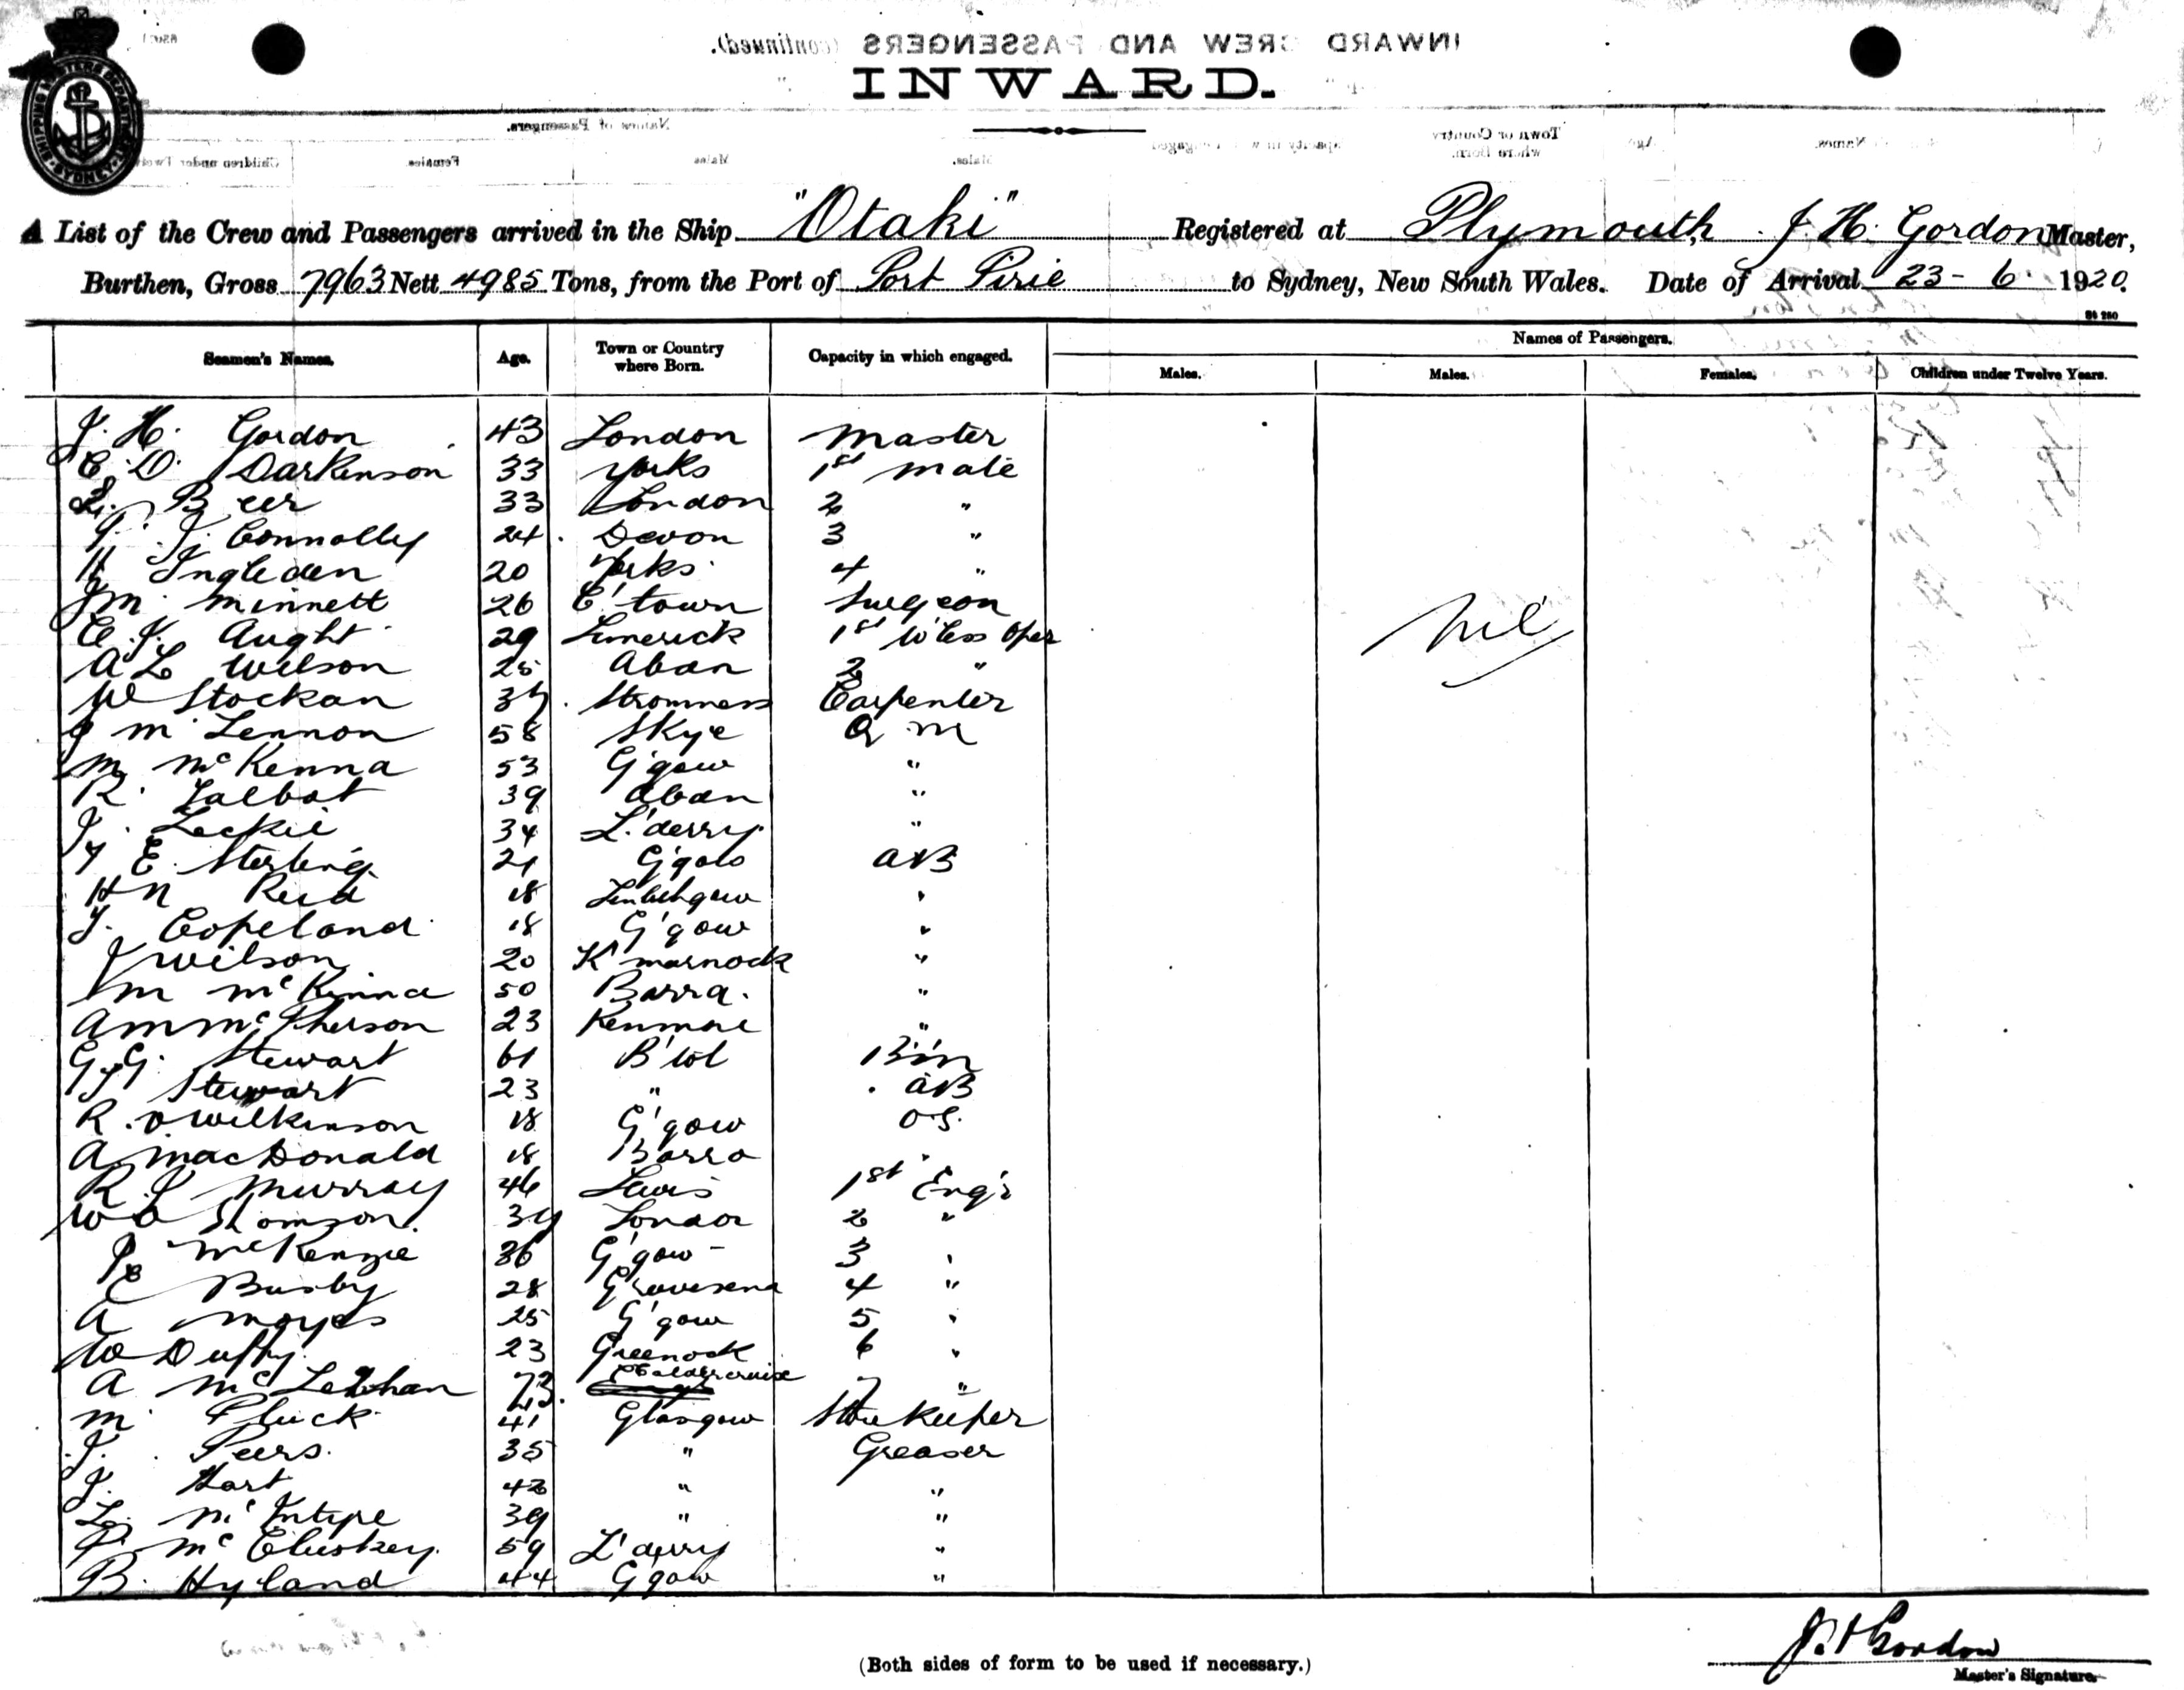 INWARD CREW AND PASSENGERS (continued).
INWARD.
SHIPPING MASTERS DEPARTMENT SYDNEY
Names of Passengers.
Town or Country where Born.
Names.
Children under Twelve
Females
Males
Males.
A List of the Crew and Passengers arrived in the Ship "Otaki" Registered at Plymouth J. H. Gordon Master,
Burthen, Gross 7963 Nett 4985 Tons, from the Port of Port Pirie to Sydney, New South Wales. Date of Arrival 23-6 1920.
Seamen's Names. Age. Town or Country where Born. Capacity in which engaged. Names of Passengers.
Males. Males. Females. Children under Twelve Years.
J. H. Gordon 43 London Master
C. D. Darkenson 33 Yorks 1st mate
L. Beer 33 London 2 "
J. Connolly 24 Devon 3 "
H Ingleden 20 Yorks 4 "
J M Minnett 26 C'town Surgeon
C. J. Aught 29 Limerick 1st W'less Oper
A L Wilson 25 Aban 2 "
W Stockan Stromness Carpenter
J McLennon 58 Skye Q M
M McKenna 53 G'gow "
R. Talbot 39 Aban "
J. Leckie 34 L'derry "
J E. Sterling 21 G'gow AB
H N Reid 18 Linlithgow "
J. Copeland 18 G'gow "
J Wilson 20 K'marnock "
M McKinna 50 Barra. "
A M McPherson 23 Kenmore "
G. G. Stewart 61 B'tol B'm
G J Stewart 23 " AB
R. Wilkinson 18 G'gow O.S.
A. MacDonald 18 Barra "
R. Murray 46 Lewis 1st Eng'r
W Thomson 34 London 2 "
J McKenzie 36 G'gow 3 "
E Busby 28 Gravesend 4 "
A Moyes 25 G'gow 5 "
W Duffy 23 Greenock 6 "
A McLethan 23. Caldercruix 7 "
M Fluck 41 Glasgow Storekeeper
J. Peers. 35 " Greaser
J. Hart 42 " "
L. McIntyre 39 " "
P. McCluskey. 59 L'derry "
B. Hyland 44 G'gow "
Nil
(Both sides of form to be used if necessary.)
J. H Gordon
Master's Signature.